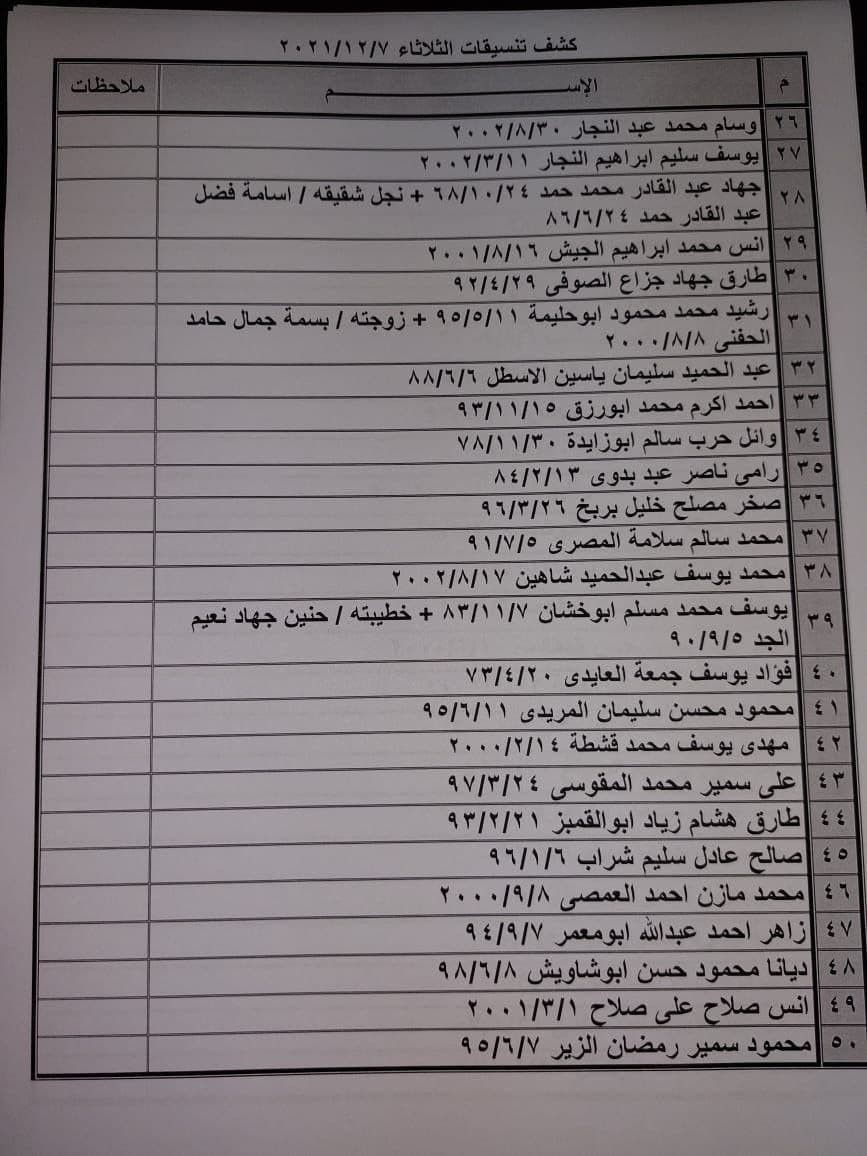 كشف تنسيقات الثلاثاء ٢٠٢١/١٢/٧
م الإســـــــم ملاحظات
٢٦ وسام محمد عبد النجار ٢٠٠٢/٨/٣٠
٢٧ يوسف سليم ابراهيم النجار ٢٠٠٢/٣/١١
٢٨ جهاد عبد القادر محمد حمد ٦٨/١٠/٢٤ + نجل شقيقه / اسامة فضل
عبد القادر حمد ٨٦/٦/٢٤
٢٩ انس محمد ابراهيم الجيش ٢٠٠١/٨/١٦
٣٠ طارق جهاد جزاع الصوفى ٩٢/٤/٢٩
٣١ رشيد محمد محمود ابوحليمة ٩٥/٥/١١ + زوجته / بسمة جمال حامد
الحفنى ٢٠٠٠/٨/٨
٣٢ عبد الحميد سليمان ياسين الاسطل ٨٨/٦/٦
٣٣ احمد اكرم محمد ابورزق ٩٣/١١/١٥
٣٤ وائل حرب سالم ابوزايدة ٧٨/١١/٣٠
٣٥ رامى ناصر عبد بدوى ٨٤/٢/١٣
٣٦ صخر مصلح خليل بربخ ٩٦/٣/٢٦
٣٧ محمد سالم سلامة المصرى ٩١/٧/٥
٣٨ محمد يوسف عبدالحميد شاهين ٢٠٠٢/٨/١٧
٣٩ يوسف محمد مسلم ابوخشان ٨٣/١١/٧ + خطيبته / حنين جهاد نعيم
الجد ٩٠/٩/٥
٤٠ فؤاد يوسف جمعة العايدى ٧٣/٤/٢٠
٤١ محمود محسن سليمان المريدى ٩٥/٦/١١
٤٢ مهدى يوسف محمد قشطة ٢٠٠٠/٢/١٤
٤٣ على سمير محمد المقوسى ٩٧/٣/٢٤
٤٤ طارق هشام زياد ابوالقمبز ٩٣/٢/٢١
٤٥ صالح عادل سليم شراب ٩٦/١/٦
٤٦ محمد مازن احمد العمصى ٢٠٠٠/٩/٨
٤٧ زاهر احمد عبدالله ابومعمر ٩٤/٩/٧
٤٨ ديانا محمود حسن ابوشاويش ٩٨/٦/٨
٤٩ انس صلاح على صلاح ٢٠٠١/٣/١
٥٠ محمود سمير رمضان الزير ٩٥/٦/٧